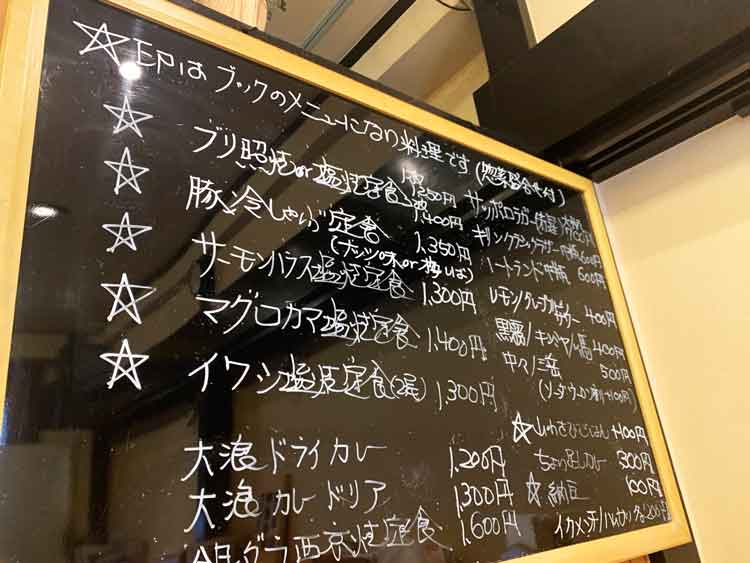 ☆印はブックのメニューにない料理です(惣菜盛合せ付)
☆ ブリ照焼or塩焼定食
☆ 豚冷しゃぶ定食 1,350円
(ナッツ味or梅しば)
☆ サーモンハラス塩焼定食 1,300円
☆ マグロカマ塩焼定食 1,400円
☆ イワシ塩焼定食(2尾) 1,300円
大浪ドライカレー 1,200円
大浪カレードリア 1,300円
西京焼定食 1,600円
サッポロラガー
キリンクラシックラガー中瓶 600円
ハートランド中瓶 600円
レモン/グレープフルーツサワー 400円
400円
中々/三岳 500円
☆山わさびごはん +100円
ちょい足しカレー 300円
☆納豆 100円
イカメンチ/ハムカツ 各200円